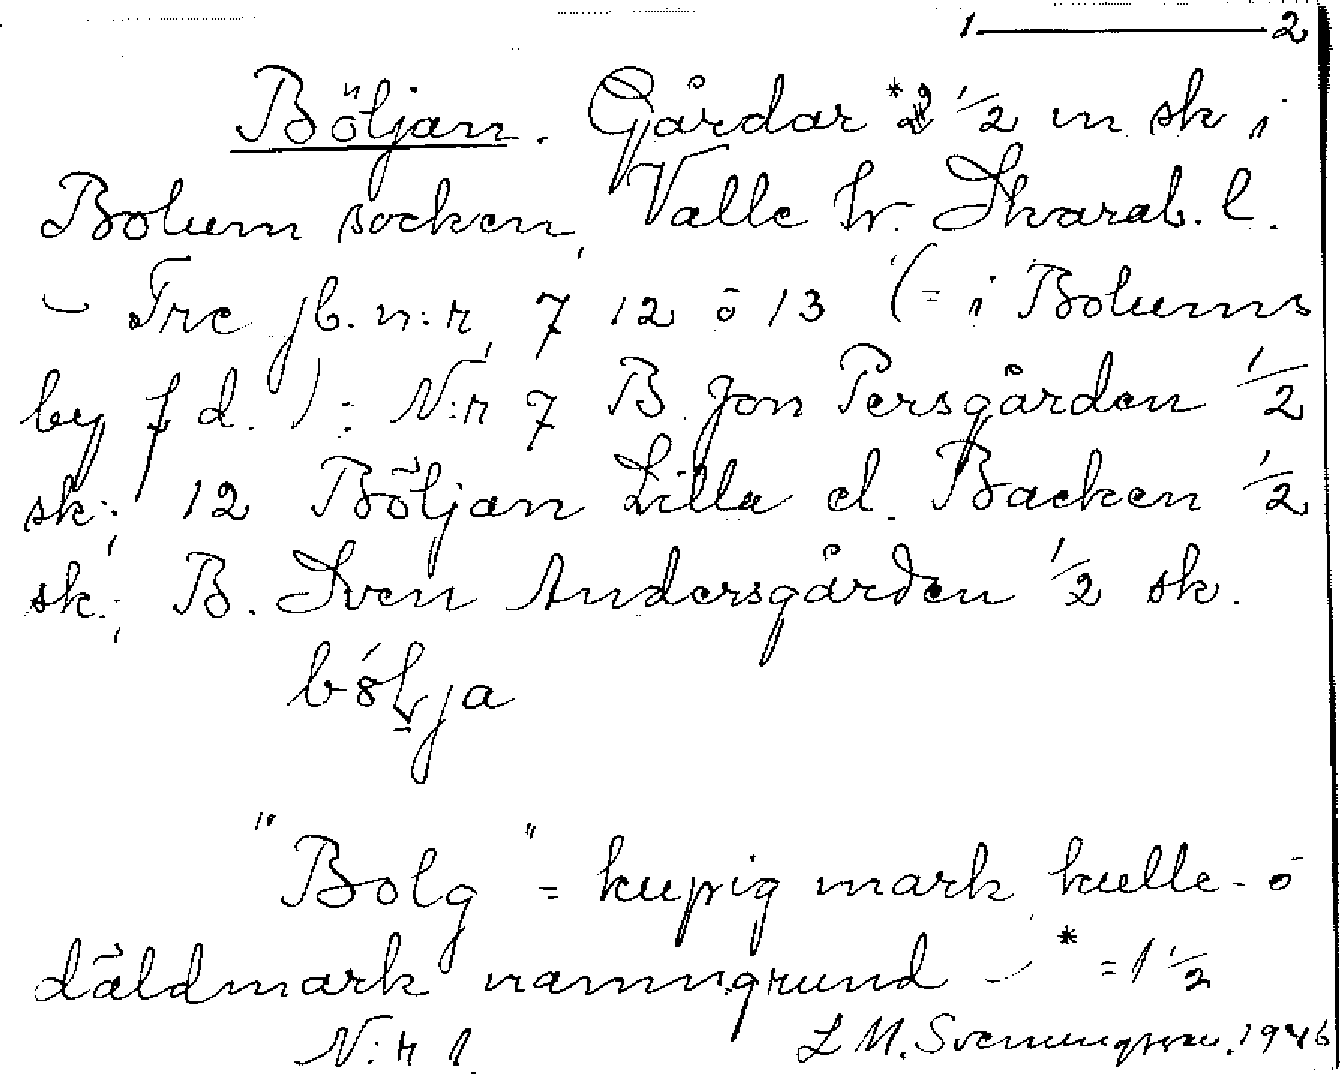 1 — 2
Böljan. Gårdar *2 1/2 m sk i
Bolum socken, Valle hr. Skarab. l.
– Tre jb. n:r, 7 12 o 13 (= i Bolums
by f d.) : N:r 7 B. Jon Persgården 1/2
sk.; 12 Böljan Lilla el. Backen 1/2
sk.; B. Sven Andersgården 1/2 sk.
bölja
"Bolg" = kupig mark, kulle- o
däldmark namngrund – * = 1 1/2
N:r 1. L M. Svenungsson. 1946